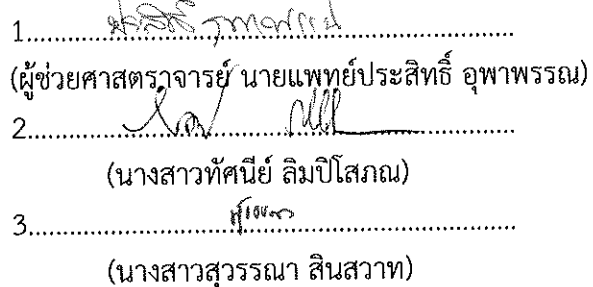 1....................ประสิทธิ์ อุพาพรรณ....................
(ผู้ช่วยศาสตราจารย์ นายแพทย์ประสิทธิ์ อุพาพรรณ)
2........................................................................
(นางสาวทัศนีย์ ลิมปิโสภณ)
3........................................................................
(นางสาวสุวรรณา สินสวาท)